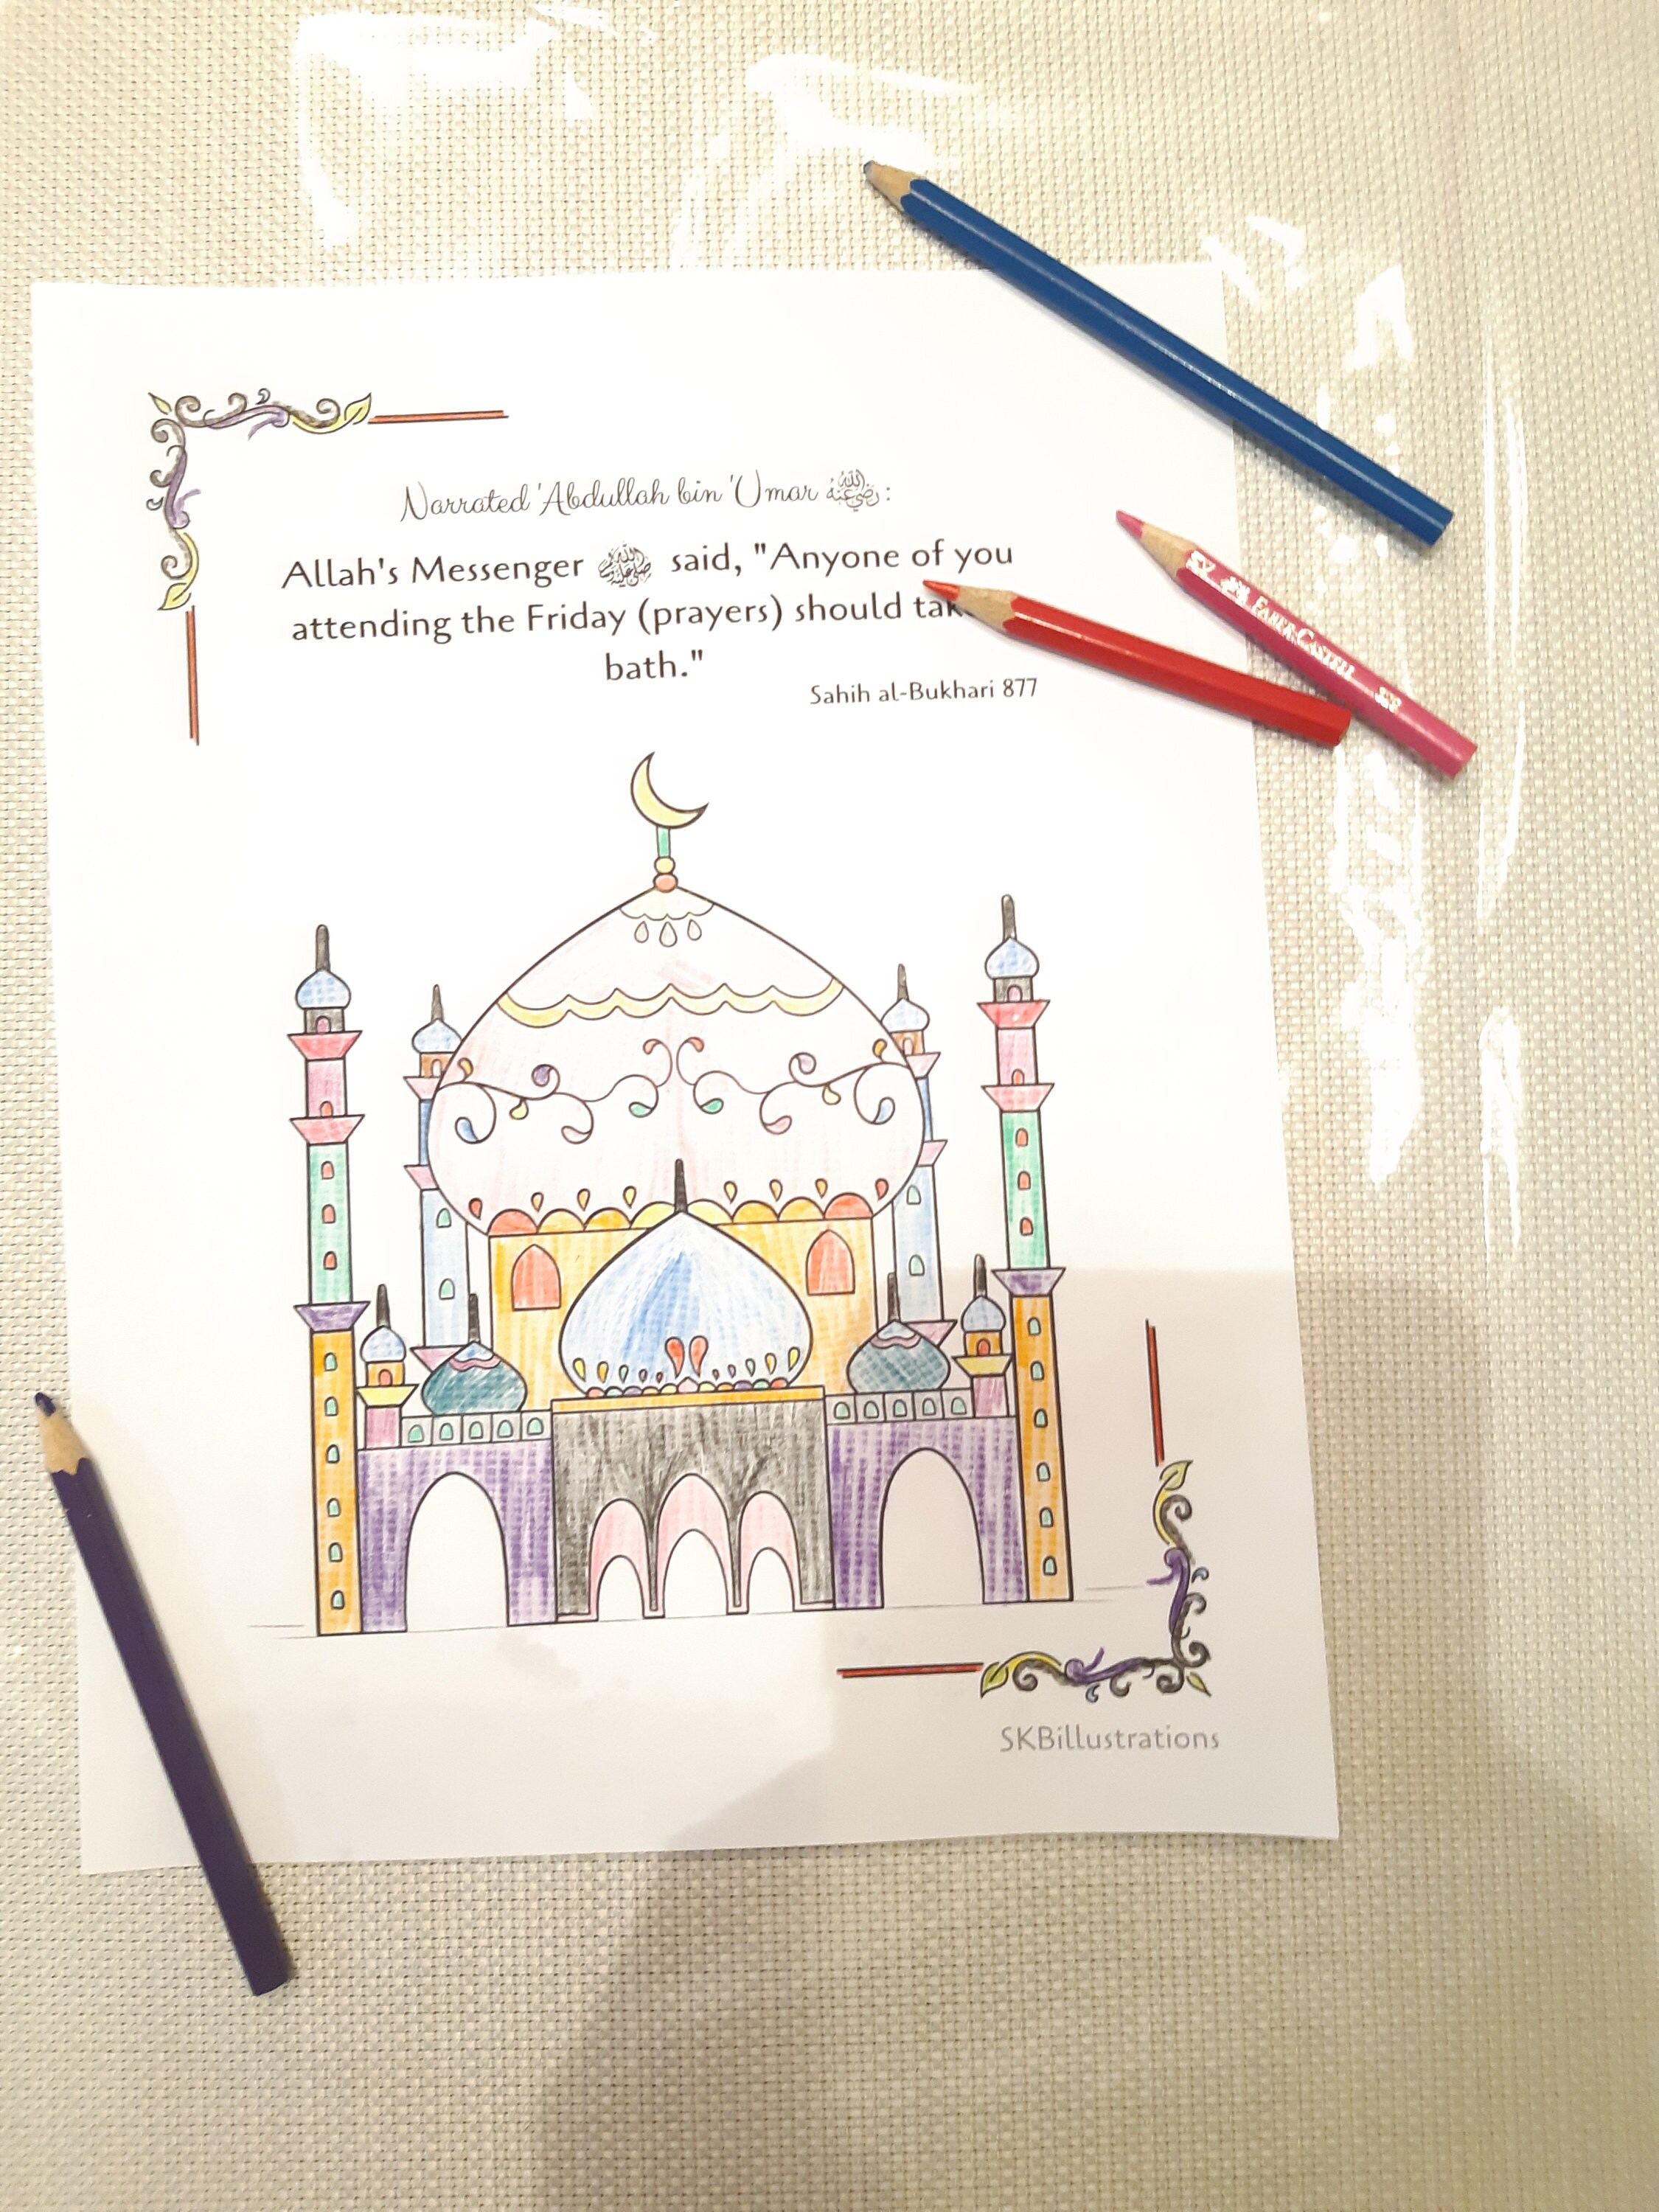 Narrated 'Abdullah bin 'Umar رضي الله عنه:
Allah's Messenger ﷺ said, "Anyone of you
attending the Friday (prayers) should
bath."
Sahih al-Bukhari 877
FABER-CASTELL
SKBillustrations